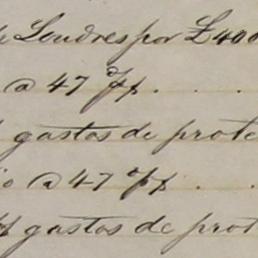 Londres por £400
a 47 
gastos de prote
o a 47 
gastos de prot